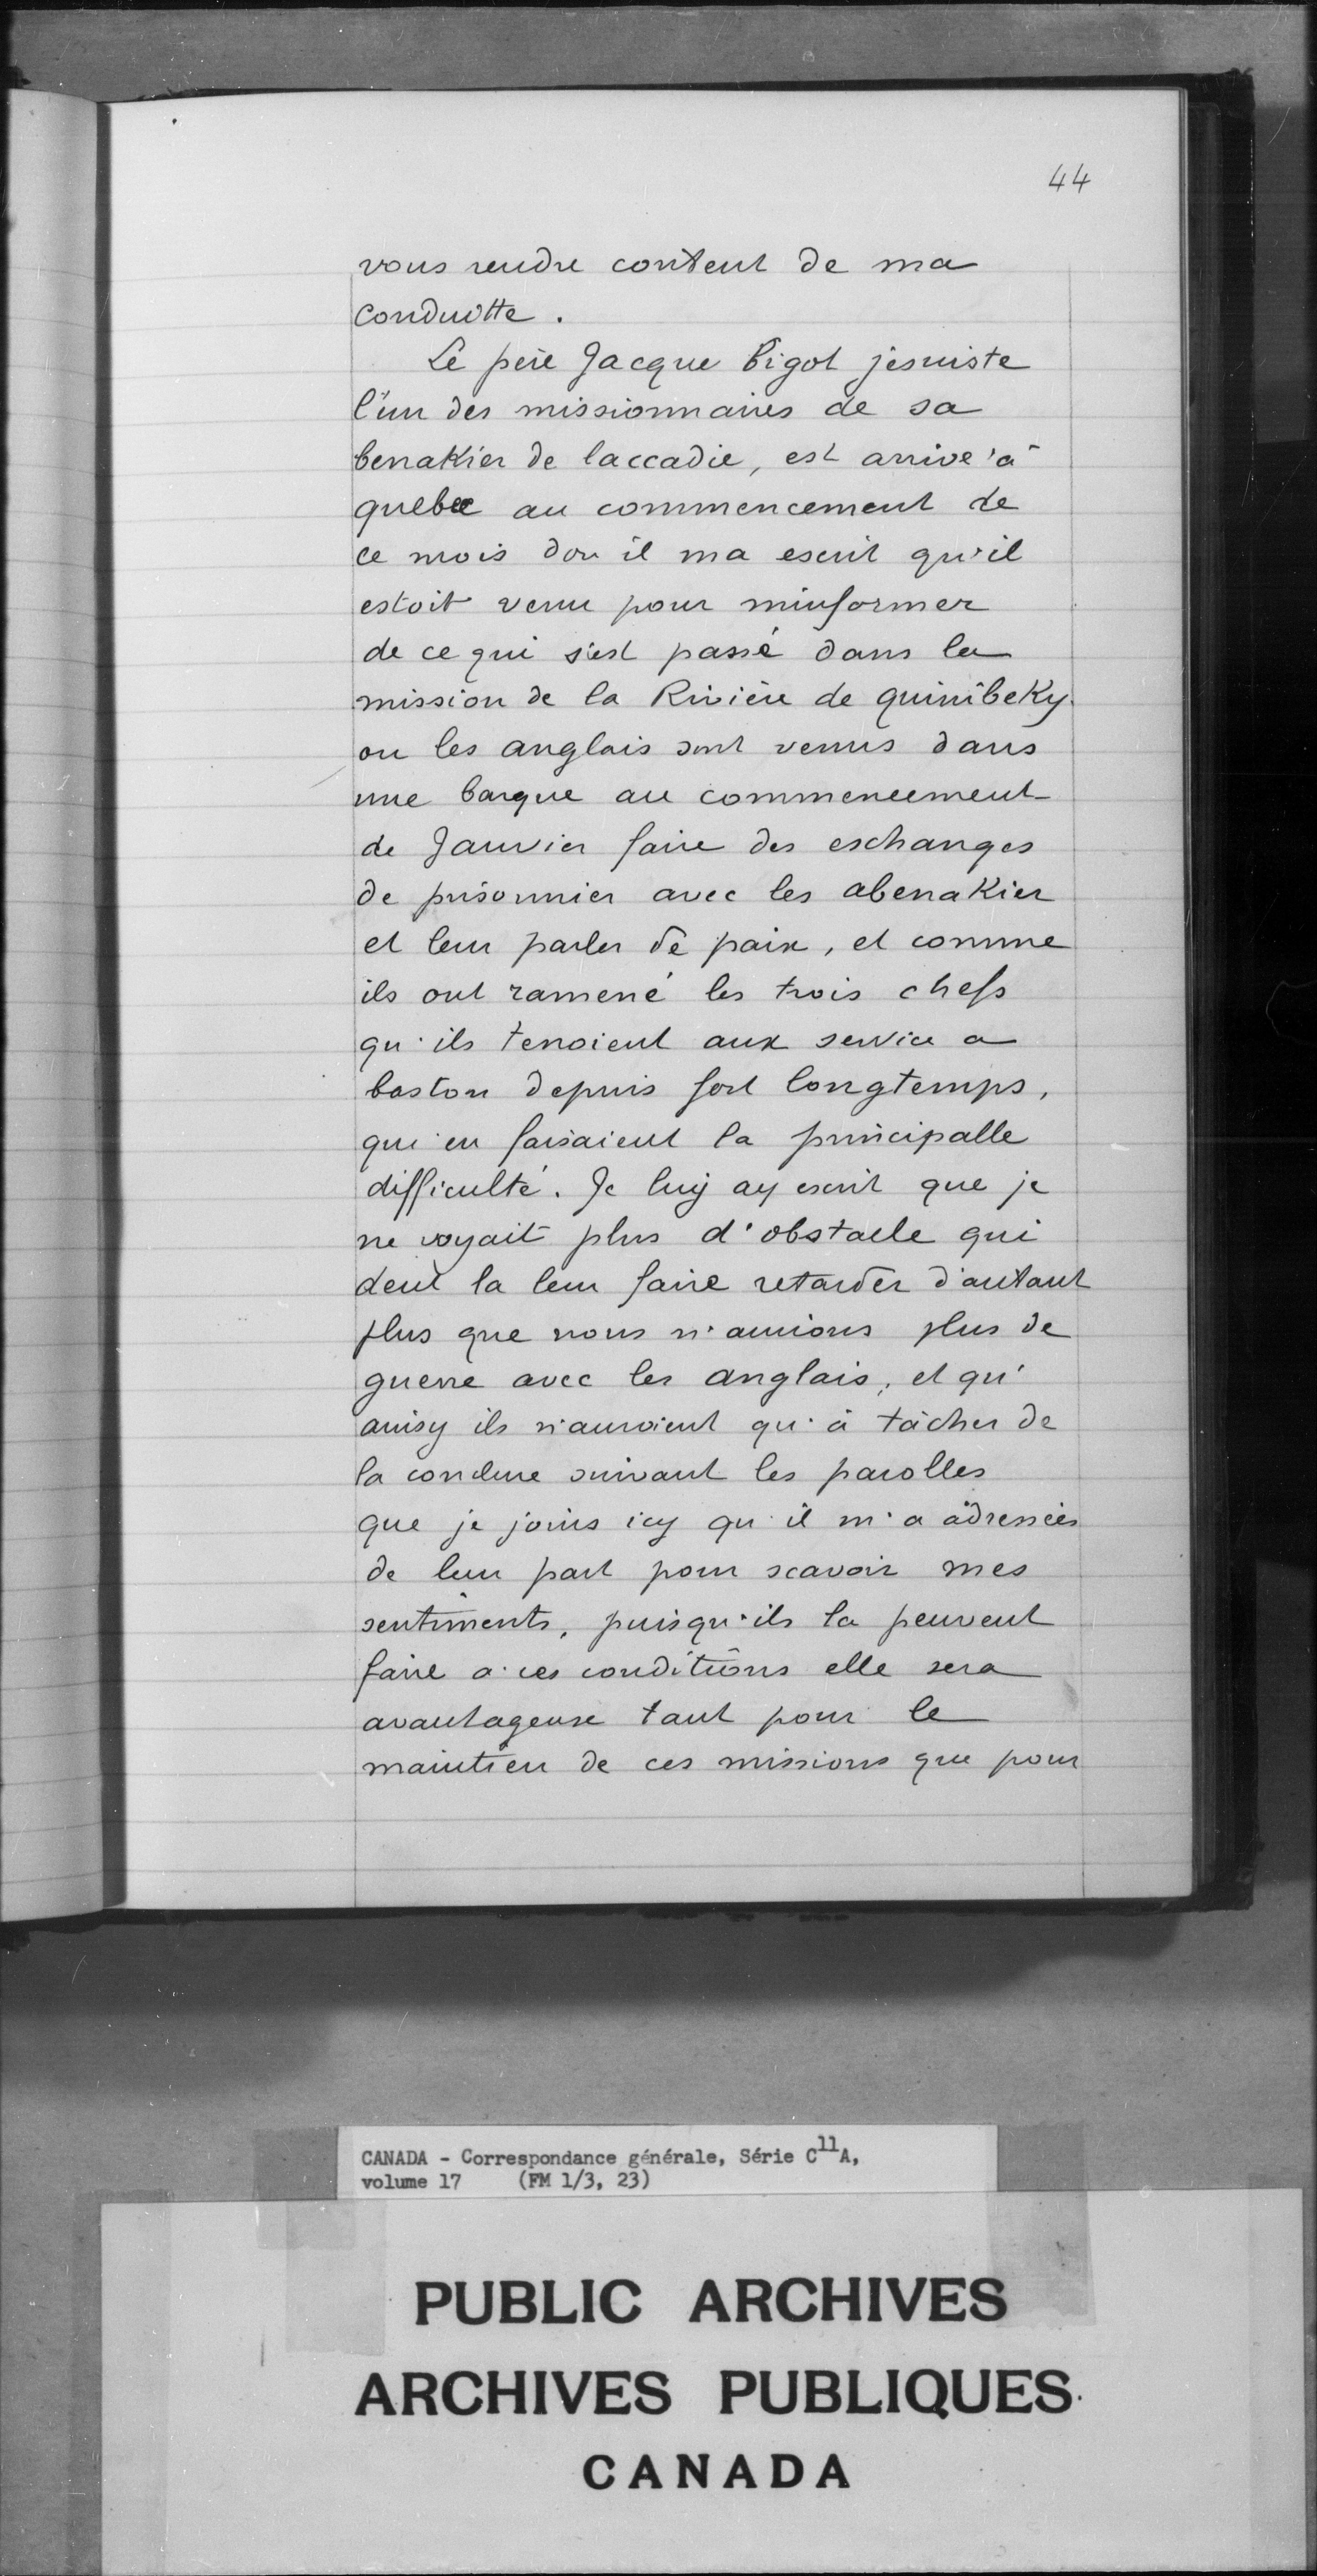 44
vous rendre content de ma
conduitte.
Le père Jacque Bigot jesuiste
l'un des missionnaires de sa
benakier de laccadie, est arrivé à
quebec au commencement de
ce mois dou il ma escrit qu'il
estoit venu pour minformer
de ce qui s'est passé dans la
mission de la Rivière de quinibeky
ou les anglais sont venus dans
une barque au commencement
de Janvier faire des eschanges
de prisonnier avec les abenakier
et leur parler de paix, et comme
ils ont ramené les trois chefs
qu'ils tenoient aux service a
baston depuis fort longtemps,
qui en faisaient la principalle
difficulté. Je luy ay escrit que je
ne voyait plus d'obstacle qui
deut la leur faire retarder d'autant
plus que nous n'avions plus de
guerre avec les anglais, et qu'
ainsy ils n'auroient qu'à tâcher de
la conclure suivant les parolles
que je joins icy qu'il m'a adressées
de leur part pour scavoir mes
sentiments, puisqu'ils la peuvent
faire a ces conditions elle sera
avantageuse tant pour le
maintien de ces missions que pour
CANADA - Correspondance générale, Série C11A,
volume 17 (FM 1/3, 23)
PUBLIC ARCHIVES
ARCHIVES PUBLIQUES
CANADA